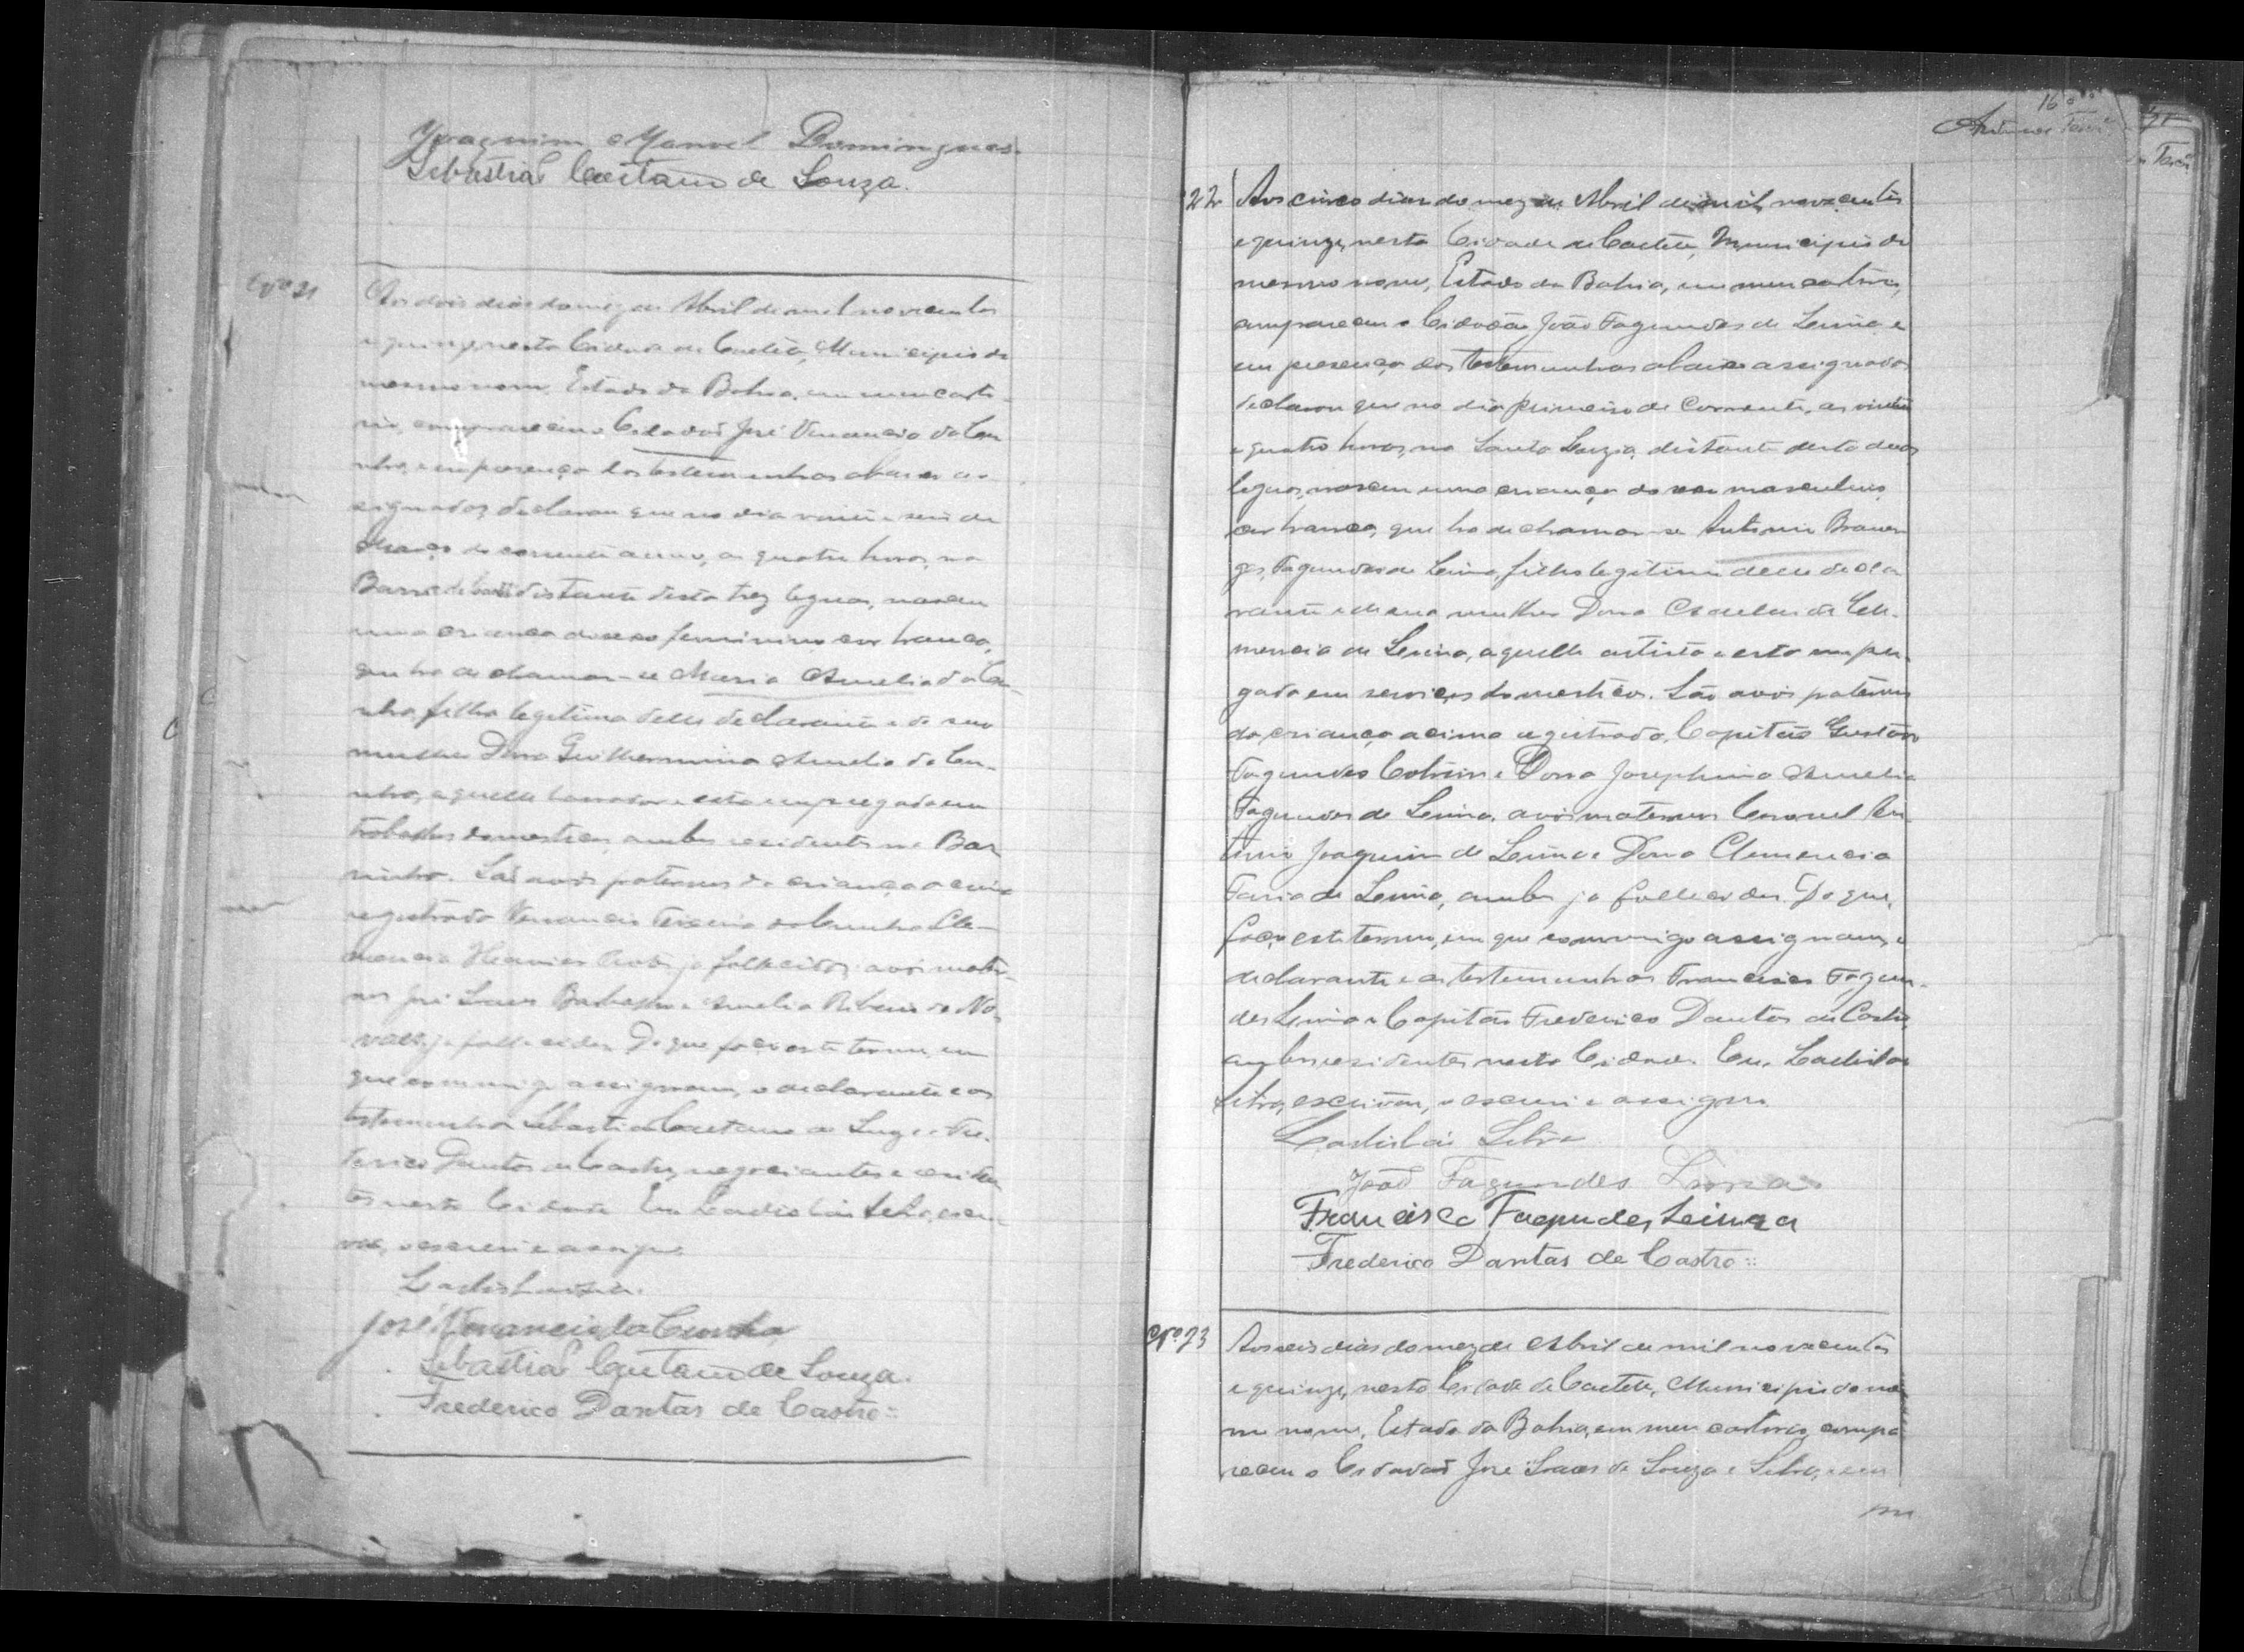 Joaquim Manoel Domingues.
Sebastião Caetano de Souza.
Nº 21
Aos dois dias do mez de Abril de mil novecentos
e quinze, nesta Cidade de Caeteté, Municipio do
mesmo nome, Estado da Bahia, em meu carto-
rio, compareceu o Cidadão José Venancio da Cu
nha, e em presença das testemunhas abaixo as-
signadas, declarou que no dia vinte e seis de
Março do corrente anno, as quatro horas, na
distante desta trez leguas, nasceu
uma criança do sexo feminino, cor branca,
que ha de chamar-se Maria Amelia da Cu-
nha, filha legitima delle declarante e de sua
mulher Dona Guilhermina Amelia da Cu-
nha, aquelle e esta empregada em
trabalhos domesticos, ambos residentes na Bar
rinha. São avós paternos da criança acima
registrada Venancio Teixeira da Cunha e Cle-
mencia já fallecidos; avós mater-
nos José e Amelia Ribeiro de No-
vaes, já fallecidos. Do que faço este termo, em
que commigo assignam, o declarante e as
testemunhas Sebastião Caetano de Souza e Fre-
derico Dantas de Castro, negociantes e residen
tes nesta Cidade. Eu Ladislau Silva, escri
vão, o escrevi e assigno.
Ladislau Silva
José Venancio da Cunha
Sebastião Caetano de Souza.
Frederico Dantas de Castro
22
Aos cinco dias do mez de Abril de mil novecentos
e quinze, nesta Cidade de Caeteté, Municipio do
mesmo nome, Estado da Bahia, em meu cartorio,
compareceu o Cidadão João Fagundes de Lima e
em presença das testemunhas abaixo assignadas
declarou que no dia primeiro do corrente, as vinte
e quatro horas, na Santa Luzia, distante desta duas
leguas, nasceu uma criança do sexo masculino,
cor branca, que ha de chamar-se Antonio
Fagundes de Lima, filho legitimo delle decla
rante e de sua mulher Dona de Cle-
mencia de Lima, aquelle artista e esta empre-
gada em serviços domesticos. São avós paternos
da criança acima registrada, Capitão Gustavo
Fagundes Cotrim e Dona Josephina Amelia
Fagundes de Lima, avós maternos Coronel An
tonio Joaquim de Lima e Dona Clemencia
Faria de Lima, ambos já fallecidos. Do que,
faço este termo, em que commigo assignam, o
declarante e as testemunhas Francisco Fagun-
des Lima e Capitão Frederico Dantas de Castro,
ambos residentes nesta Cidade. Eu, Ladislau
Silva, escrivão, o escrevi e assigno.
Ladislau Silva
João Fagundes Lima
Francisco Fagundes Leima
Frederico Dantas de Castro
Nº 23
Aos seis dias do mez de Abril de mil novecentos
e quinze, nesta Cidade de Caeteté, Municipio do mes
mo nome, Estado da Bahia, em meu cartorio, compa
receu o Cidadão José de Souza e Silva, e em